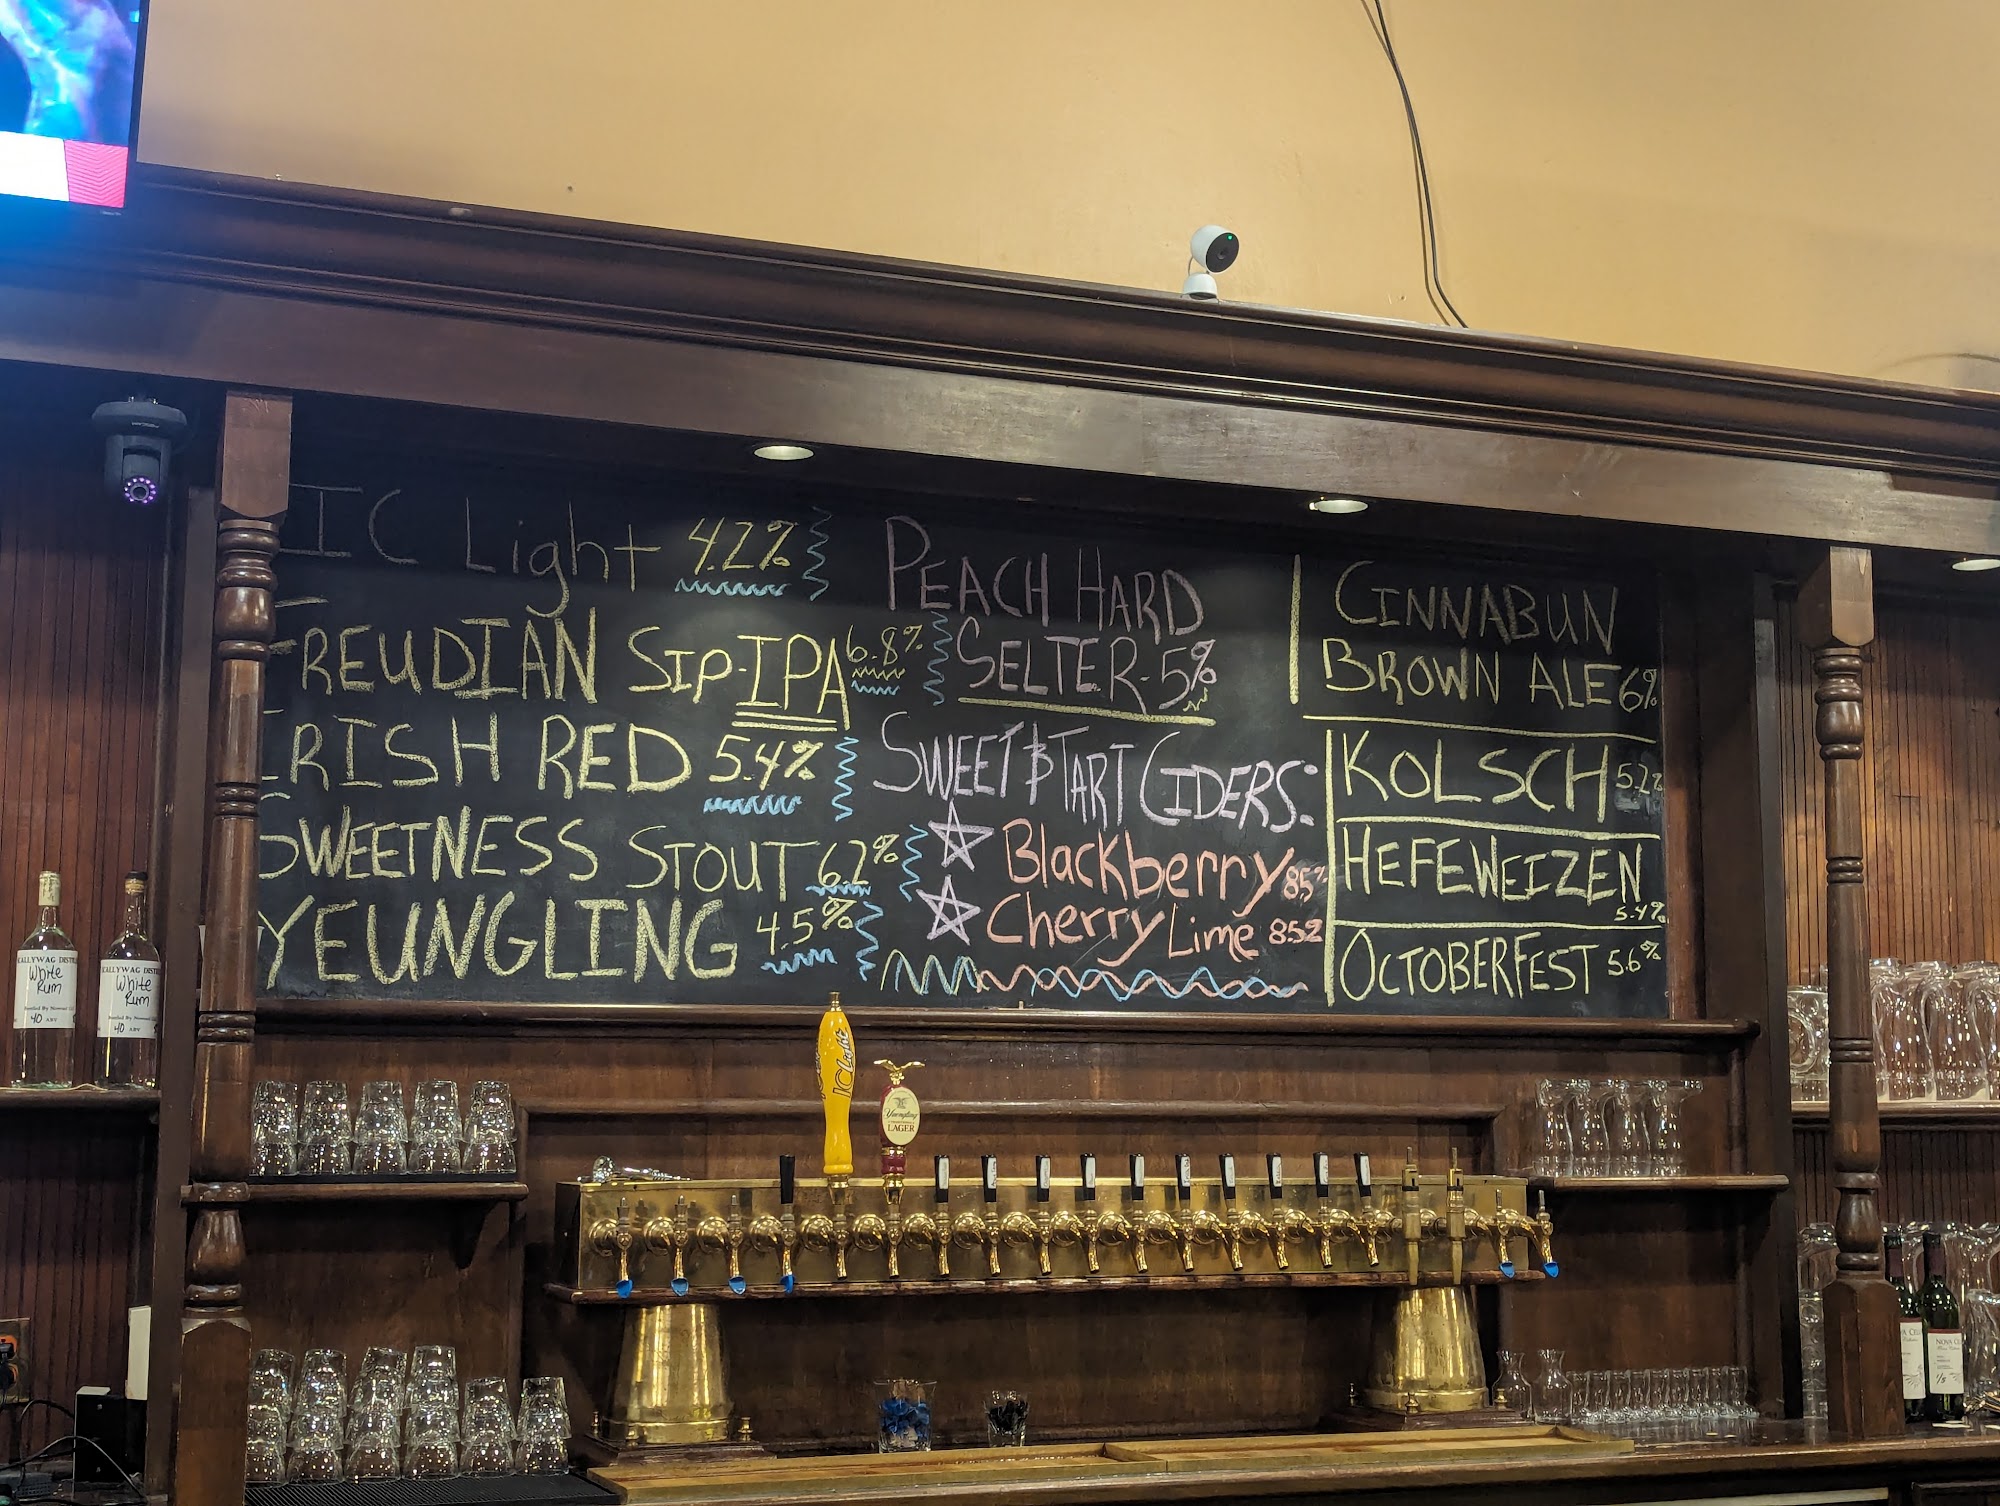 IC Light 4.2%
FREUDIAN SIP-IPA 6.8%
IRISH RED 5.4%
SWEETNESS STOUT 6.2%
YEUNGLING 4.5%
PEACH HARD
SELTER-5%
SWEET & TART CIDERS:
Blackberry 8.5%
Cherry Lime 8.5%
CINNABUN
BROWN ALE 6%
KOLSCH 5.2%
HEFEWEIZEN
5.4%
OCTOBERFEST 5.6%
White
Rum
40 ABV
White
Rum
40 ABV
IC Light
Yuengling
LAGER